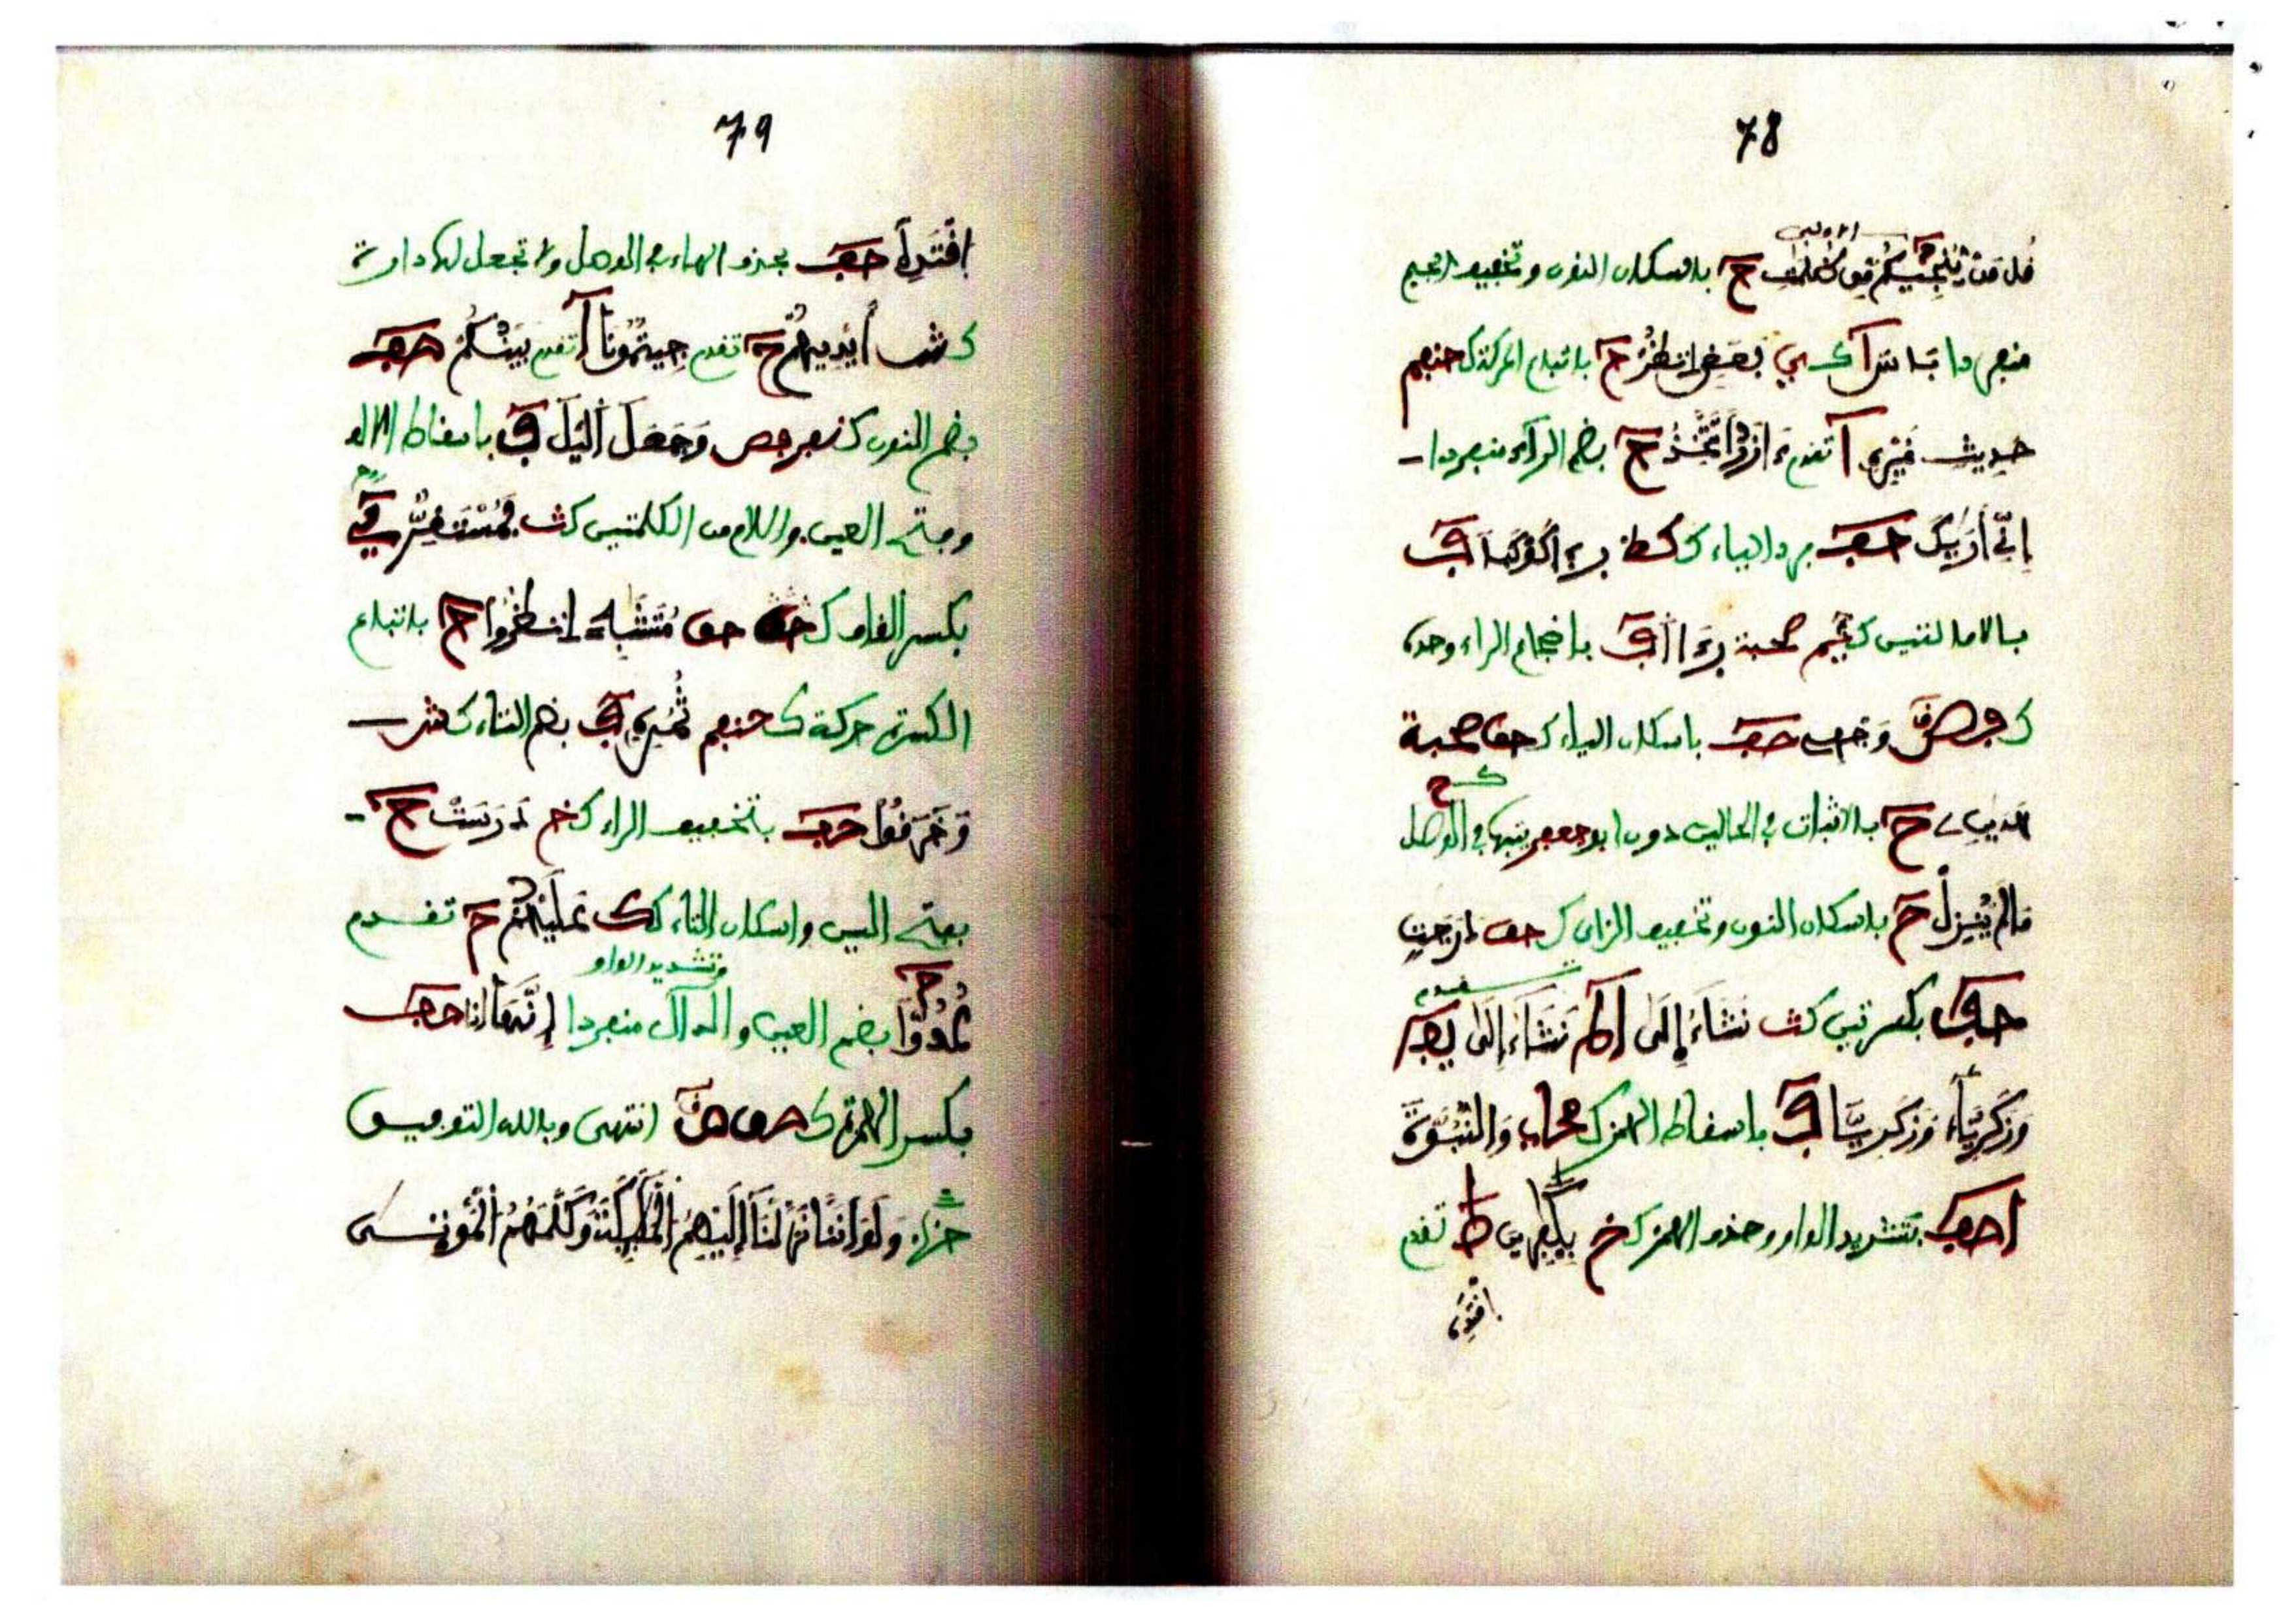 78
الاولى
قل من ينجيكم من ظلمات ح باسكان النون وتخفيف الجيم
منفردا باس ا بعض انظر ح باتباع الحركة ك حنعم
حديث غيره ا تقدم ءازر اتتخذ ح بضم الراء منفردا
إني أريك حف الياء ك رءا كوكبا ف
بالامالتين ك صحبة رءا ا ف باضجاع الراء وحده
ك وجهي حف باسكان الياء ك حق صحبة
هدين ح بالاثبات في الحالين دون ابو جعفر يثبتها في الوصل
ما لم ينزل ح باسكان النون وتخفيف الزاي ك حق درجت
تقدم
حف بكسرتين كث نشاء إلى ا نشاء إلى
وزكرياء وزكريا ف باسقاط الهمز ك صحاب والنبوة
ا حف بتشديد الواو وحذف الهمز ك خ بكفرين ط تقدم
اقتده
79
اقتده حف بحذف الهاء في الوصل ولا تجعل لك دارة
ك شف أيديهم ح تقدم جيتمونا ا تقدم بينكم حف
بضم النون ك نفر وجعل اليل ف باسقاط الالف
وفتح العين واللام من الكلمتين كث فمستقر
بكسر القاف ك حق متشبه انظروا ح باتباع
الكسرة حركة ك حنعم ثمره ف بضم الثاء ك شف
وخرقوا حف بتخفيف الراء ك خ درست ح
بفتح السين واسكان التاء ك ك عليهم ح تقدم
وتشديد الواو
عدوا ح بضم العين والدال منفردا إنها إذا حف
بكسر الهمزة ك حق انتهى وبالله التوفيق
حزب ولو أننا نزلنا إليهم الملئكة وكلمهم الموتى